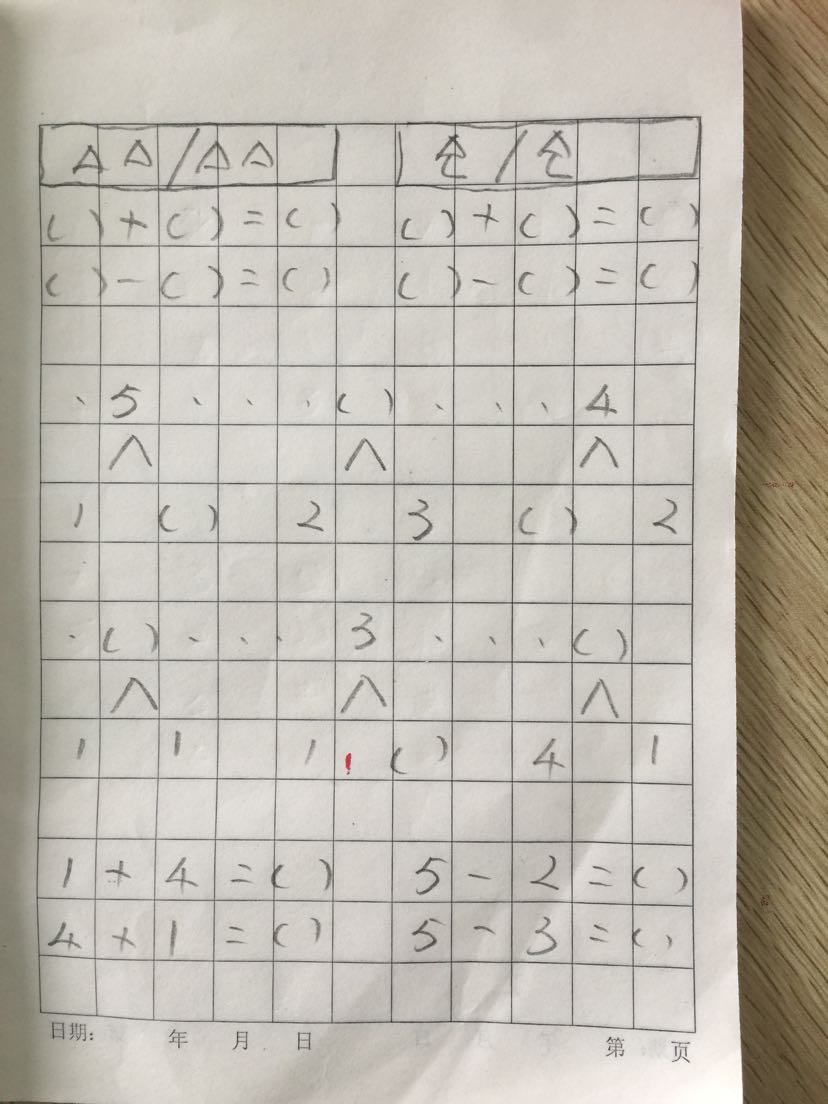 ( ) + ( ) = ( ) ( ) + ( ) = ( )
( ) - ( ) = ( ) ( ) - ( ) = ( )
、 5 、 、 、 ( ) 、 、 、 4
∧ ∧ ∧
1 ( ) 2 3 ( ) 2
、 ( ) 、 、 、 3 、 、 、 ( )
∧ ∧ ∧
1 1 1 ( ) 4 1
1 + 4 = ( ) 5 - 2 = ( )
4 + 1 = ( ) 5 - 3 = ( )
日期: 年 月 日 第 页